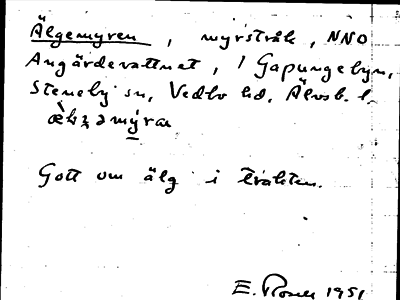 Älgemyren, myrstråk, NNO
Angärdevattnet, i Gapungebyn,
Steneby sn, Vedbo hd, Älvsb. l.
Gott om älg i trakten.
E. 1951